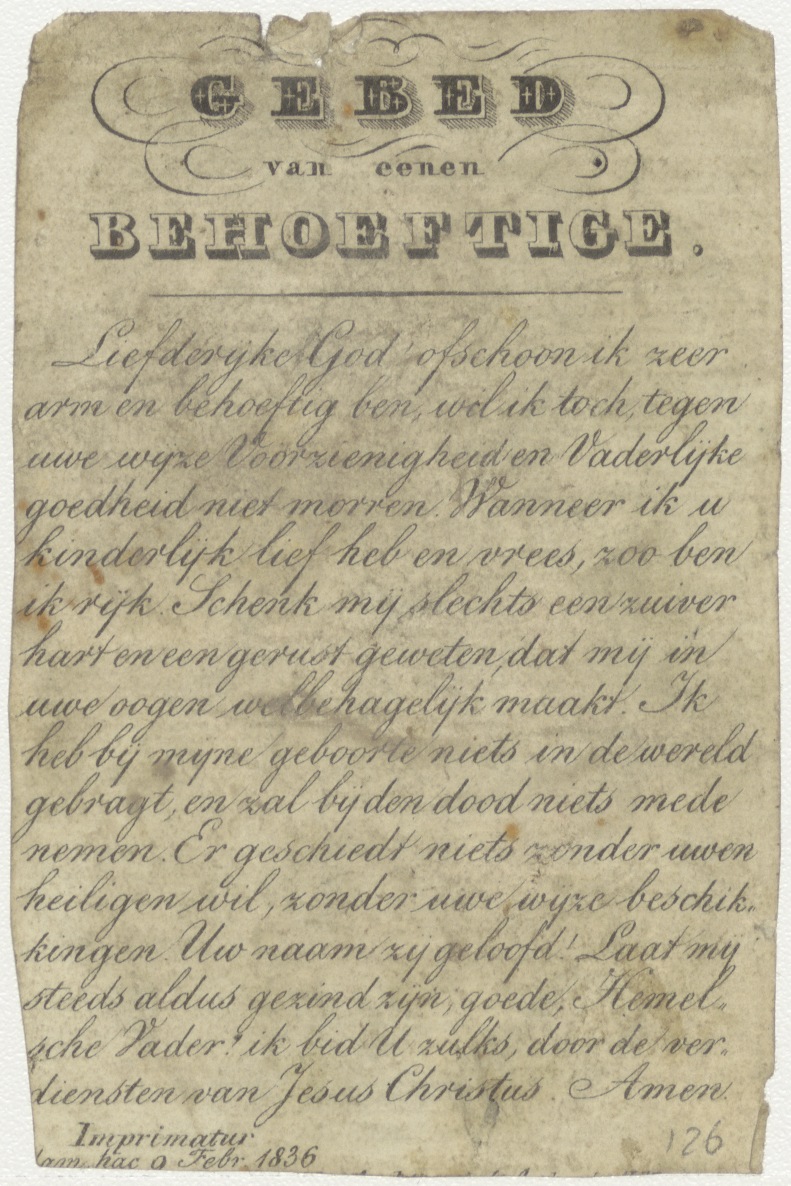 GEBED
van eenen
BEHOEFTIGE.
Liefderijke God! ofschoon ik zeer
arm en behoeftig ben, wil ik toch, tegen
uwe wijze Voorzienigheid en Vaderlijke
goedheid niet morren. Wanneer ik u
kinderlijk lief heb en vrees, zoo ben
ik rijk. Schenk mij slechts een zuiver
hart en een gerust geweten, dat mij in
uwe oogen welbehagelijk maakt. Ik
heb bij mijne geboorte niets in de wereld
gebragt, en zal bij den dood niets mede
nemen. Er geschiedt niets zonder uwen
heiligen wil, zonder uwe wijze beschik-
kingen. Uw naam zij geloofd! Laat mij
steeds aldus gezind zijn, goede, Hemel-
sche Vader! ik bid U zulks, door de ver-
diensten van Jesus Christus. Amen.
Imprimatur
dam, hac 9 Febr. 1836
126